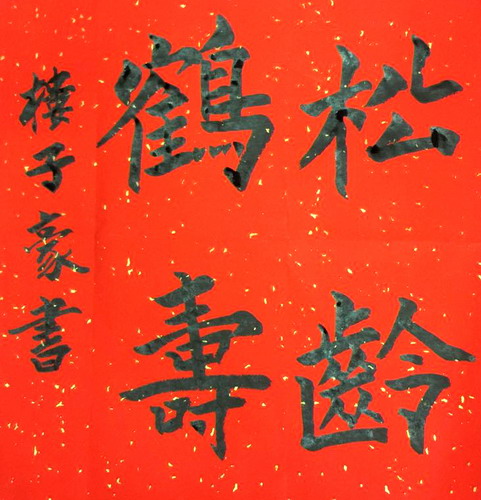 松齡
鶴壽
樓子豪書